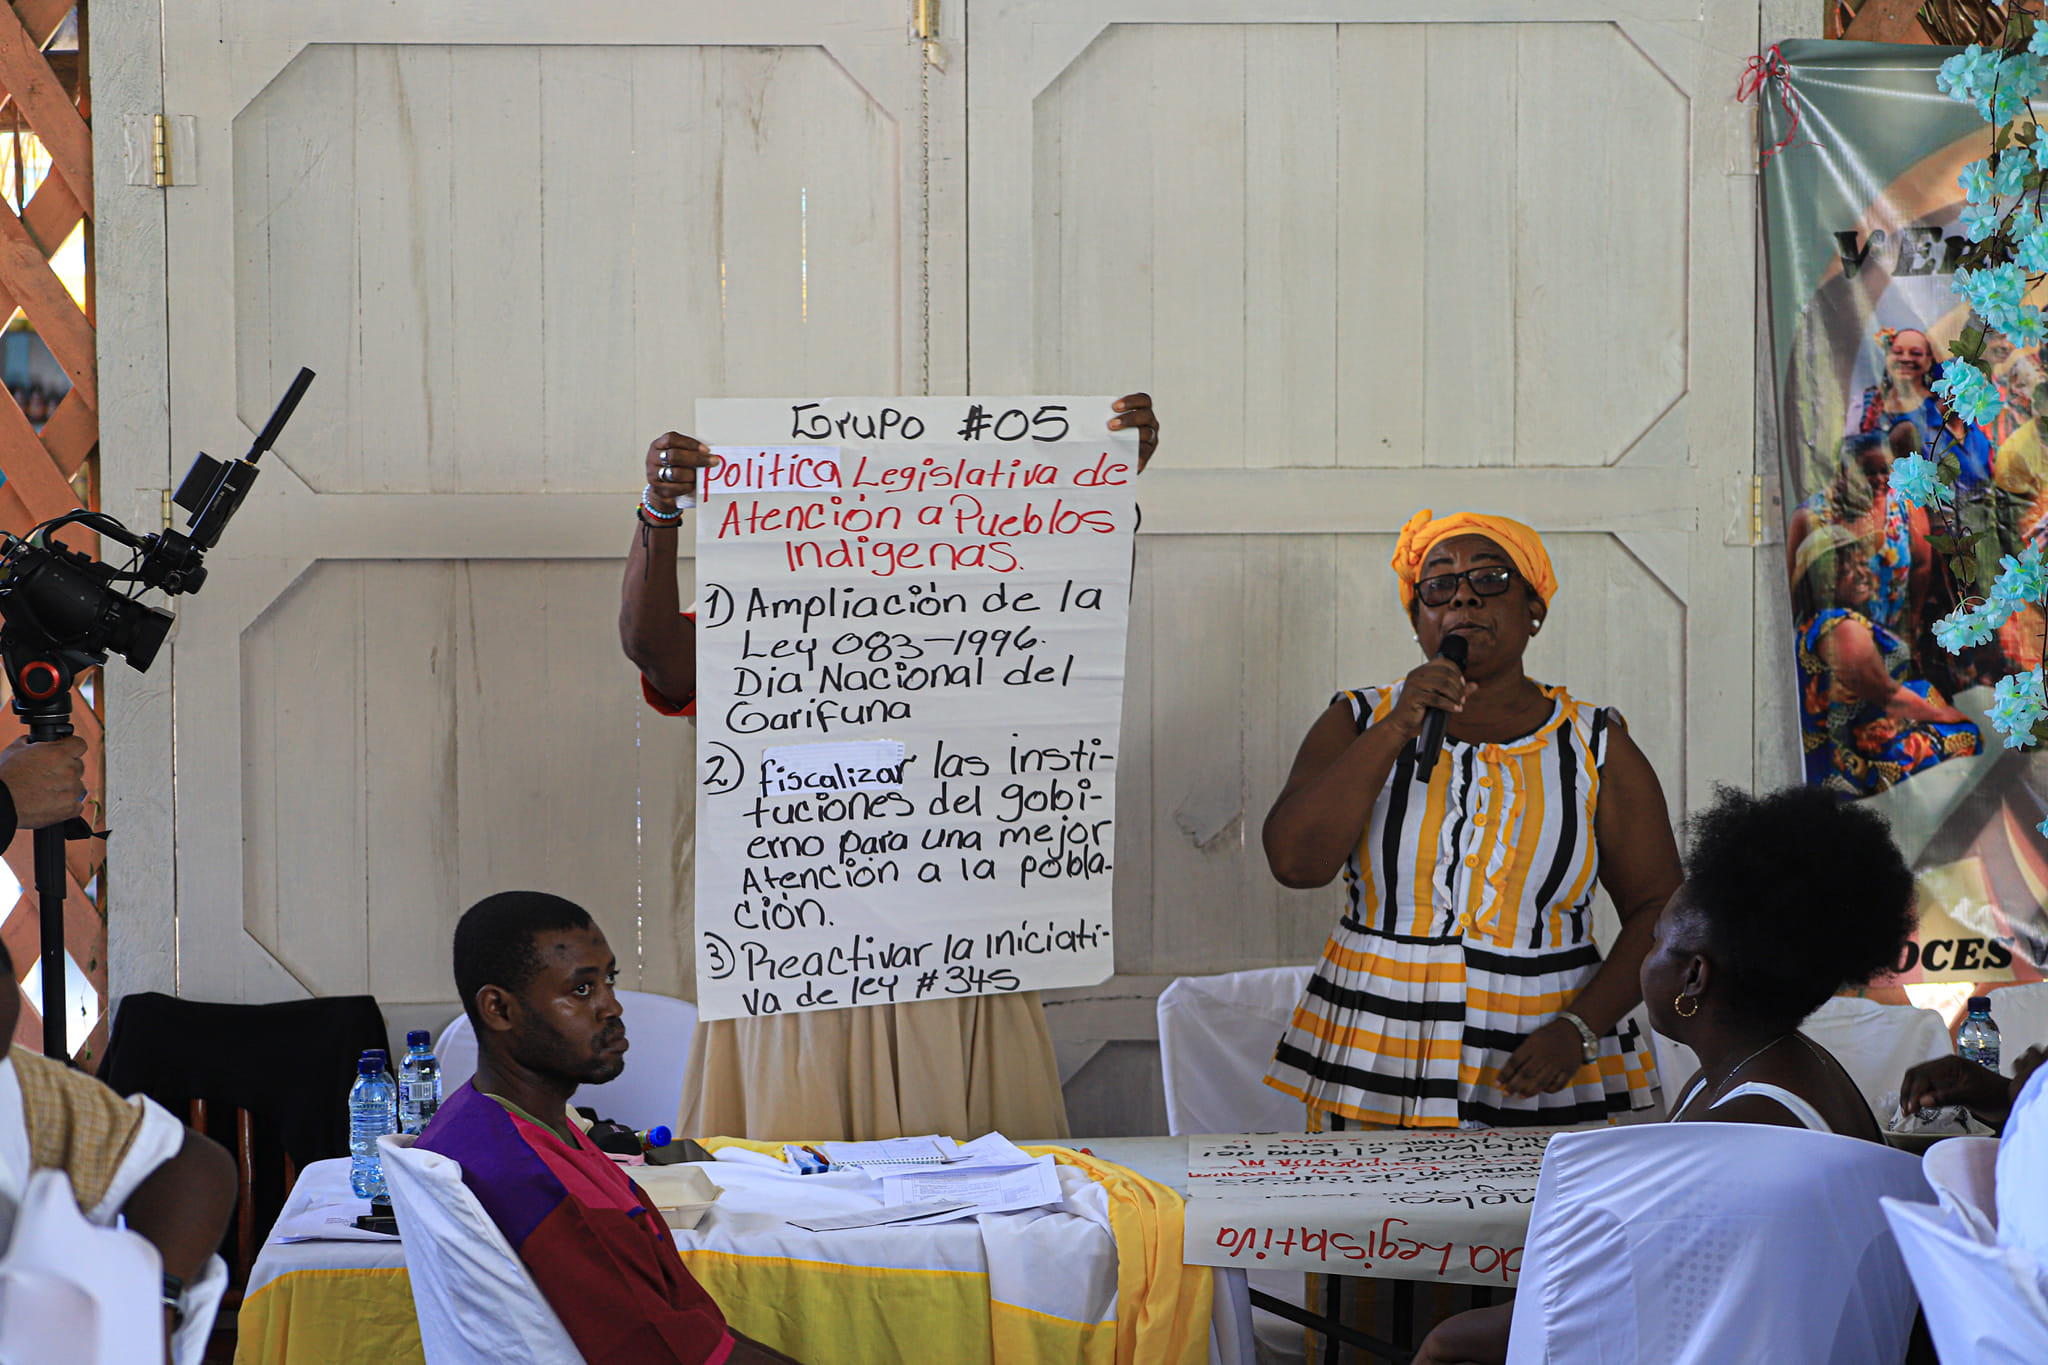 Grupo #05
Politica Legislativa de
Atención a Pueblos
Indigenas.
1) Ampliación de la
Ley 083-1996.
Dia Nacional del
Garifuna
2) fiscalizar las insti-
tuciones del gobi-
erno para una mejor
Atención a la pobla-
ción.
3) Reactivar la iniciati-
va de ley #345
OCES
da Legislativa
mpleo: